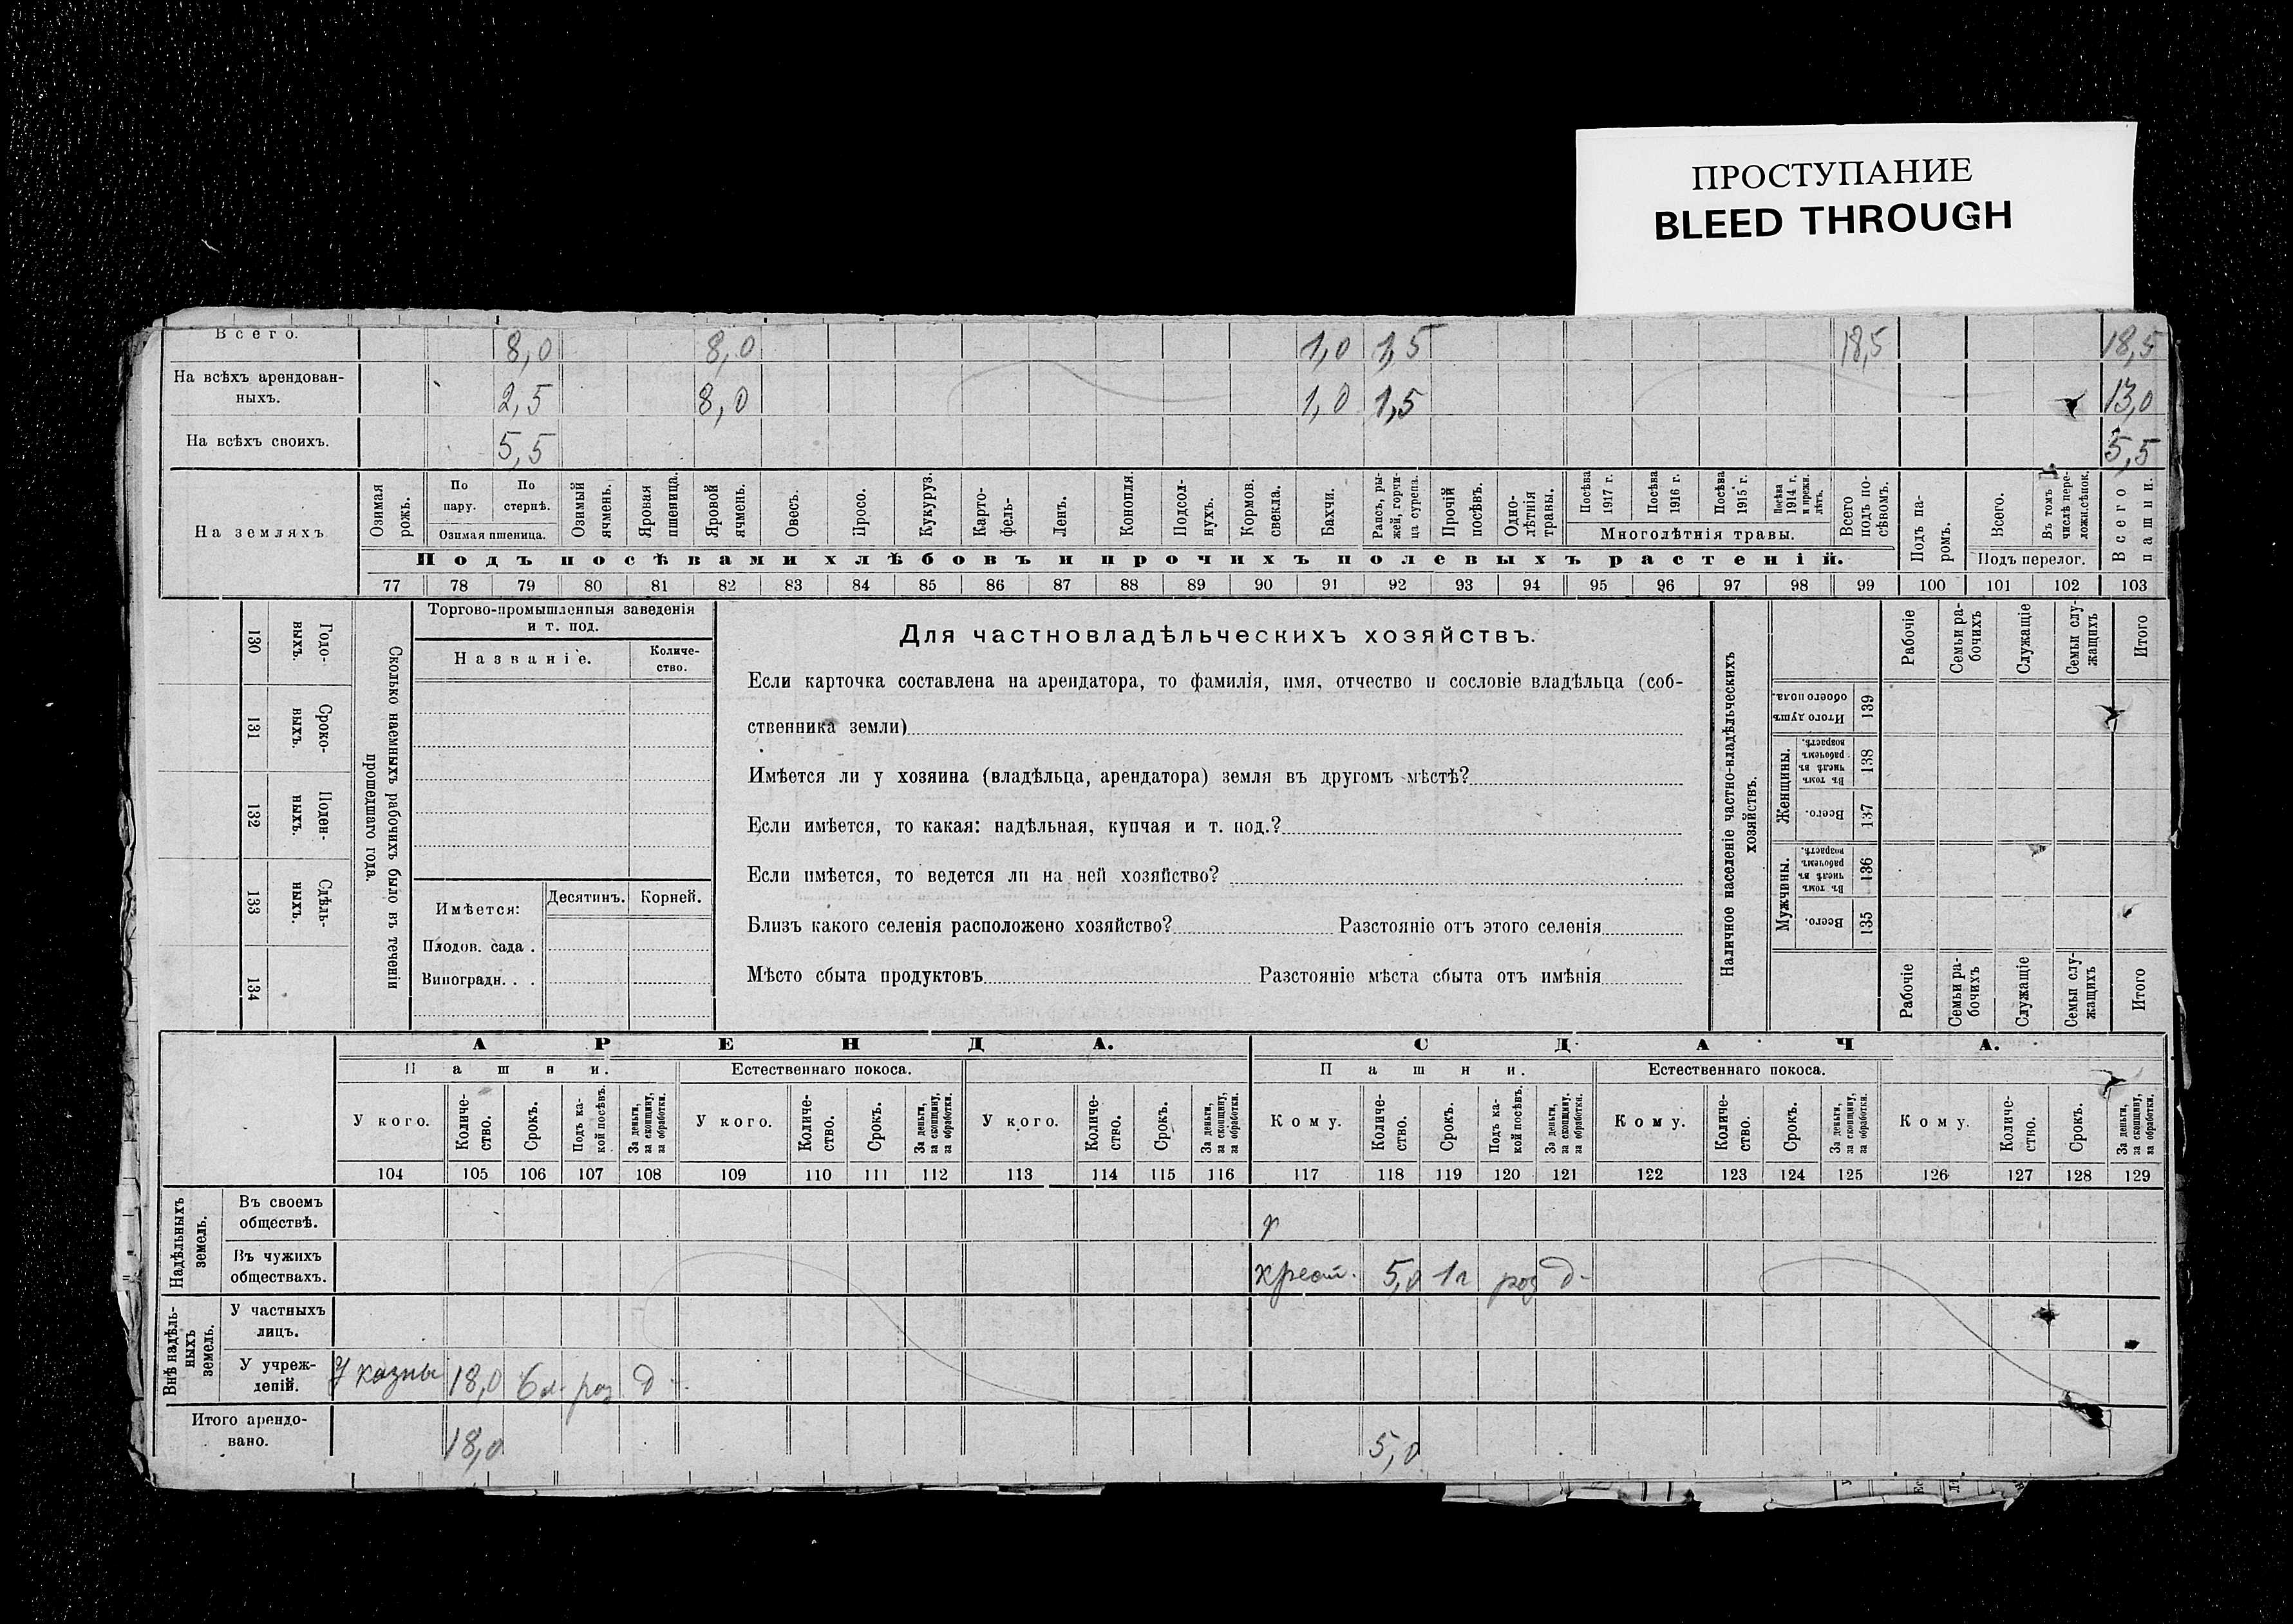 ПРОСТУПАНИЕ
BLEED THROUGH
Всего. 8,0 8,0 1,0 1,5 18,5 18,5
На всѣхъ арендован-
ныхъ. 2,5 8,0 1,0 1,5 13,0
На всѣхъ своихъ. 5,5 5,5
На земляхъ
Озимая рожь.
По пару.
По стернѣ.
Озимая пшеница.
Озимый ячмень.
Яровая пшеница.
Яровой ячмень.
Овесъ.
Просо.
Кукуруз.
Карто-
фель-
Ленъ.
Конопля.
Подсол-
нухъ.
Кормов. свекла.
Бахчи.
Рапсъ, ры-
жей, горчи-
ца сурепа.
Прочій посѣвъ.
Одно-
лѣтнія травы.
Посѣва 1917 г.
Посѣва 1916 г.
Посѣва 1915 г.
Посѣва 1914 г. и прежн. лѣтъ.
Многолѣтнія травы.
Всего подъ по-
сѣвомъ.
Подъ па-
ромъ.
Всего.
Въ томъ числѣ пере-
ложн.сѣнок.
Подъ перелог.
Всего пашни.
Подъ посѣвами хлѣбовъ и прочихъ полевыхъ растеній.
77 78 79 80 81 82 83 84 85 86 87 88 89 90 91 92 93 94 95 96 97 98 99 100 101 102 103
130 Годо-
выхъ.
131 Сроко-
выхъ.
132 Поден-
ныхъ.
133 Сдѣль-
ныхъ.
134
Сколько наемныхъ рабочихъ было въ теченіи
прошедшаго года.
Торгово-промышленныя заведенія
и т. под.
Названіе. Количе-
ство.
Имѣется: Десятинъ. Корней.
Плодов. сада .
Виноградн. . .
Для частновладѣльческихъ хозяйствъ.
Если карточка составлена на арендатора, то фамилія, имя, отчество и сословіе владѣльца (соб-
ственника земли)
Имѣется ли у хозяина (владѣльца, арендатора) земля въ другомъ мѣстѣ?
Если имѣется, то какая: надѣльная, купчая и т. под.?
Если имѣется, то ведется ли на ней хозяйство?
Близъ какого селенія расположено хозяйство? Разстояніе отъ этого селенія
Мѣсто сбыта продуктовъ Разстояніе мѣста сбыта отъ имѣнія
Наличное населеніе частно-владѣльческихъ
хозяйствъ.
Рабочіе
Семьи ра-
бочихъ
Служащіе
Семьи слу-
жащихъ
Итого
Итого душъ обоего пола. 139
Женщины.
Въ томъ числѣ въ рабочемъ возрастѣ. 138
Всего. 137
Мужчины.
Въ томъ числѣ въ рабочемъ возрастѣ. 136
Всего. 135
Рабочіе
Семьи ра-
бочихъ
Служащіе
Семьи слу-
жащихъ
Итого
АРЕНДА. СДАЧА.
Пашни. Естественнаго покоса. Пашни. Естественнаго покоса.
У кого. Количе-
ство. Срокъ. Подъ ка-
кой посѣвъ. За деньги, за скопщину, за обработки.
У кого. Количе-
ство. Срокъ. За деньги, за скопщину, за обработки.
У кого. Количе-
ство. Срокъ. За деньги, за скопщину, за обработки.
Кому. Количе-
ство. Срокъ. Подъ ка-
кой посѣвъ. За деньги, за скопщину, за обработки.
Кому. Количе-
ство. Срокъ. За деньги, за скопщину, за обработки.
Кому. Количе-
ство. Срокъ. За деньги, за скопщину, за обработки.
104 105 106 107 108 109 110 111 112 113 114 115 116 117 118 119 120 121 122 123 124 125 126 127 128 129
Надѣльныхъ
земель.
Въ своемъ
обществѣ.
Въ чужихъ
обществахъ. крест. 5,0 1 г роз д-
Внѣ надѣль-
ныхъ
земель.
У частныхъ
лицъ.
У учреж-
деній. У казны 18,0 6 л. роз д-
Итого арендо-
вано. 18,0 5,0